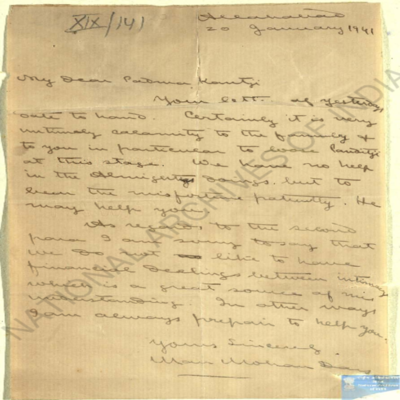 XIX/141
Allahabad
20 January 1941
My Dear Padma Kantji
Your lett. of yesterday
date to hand. Certainly it is very
untimely calamity to the family &
to you in particular to lose
at this stage. We have no help
in the Almighty's doings but to
bear the misfortune patiently. He
may help you.
As regards to the second
para I am sorry to say that
we do not like to have
financial dealings between
which is a great source of mis
understanding. In other ways
I am always prepair to help you.
Yours Sincerely
Man Mohan Das
NATIONAL ARCHIVES OF INDIA